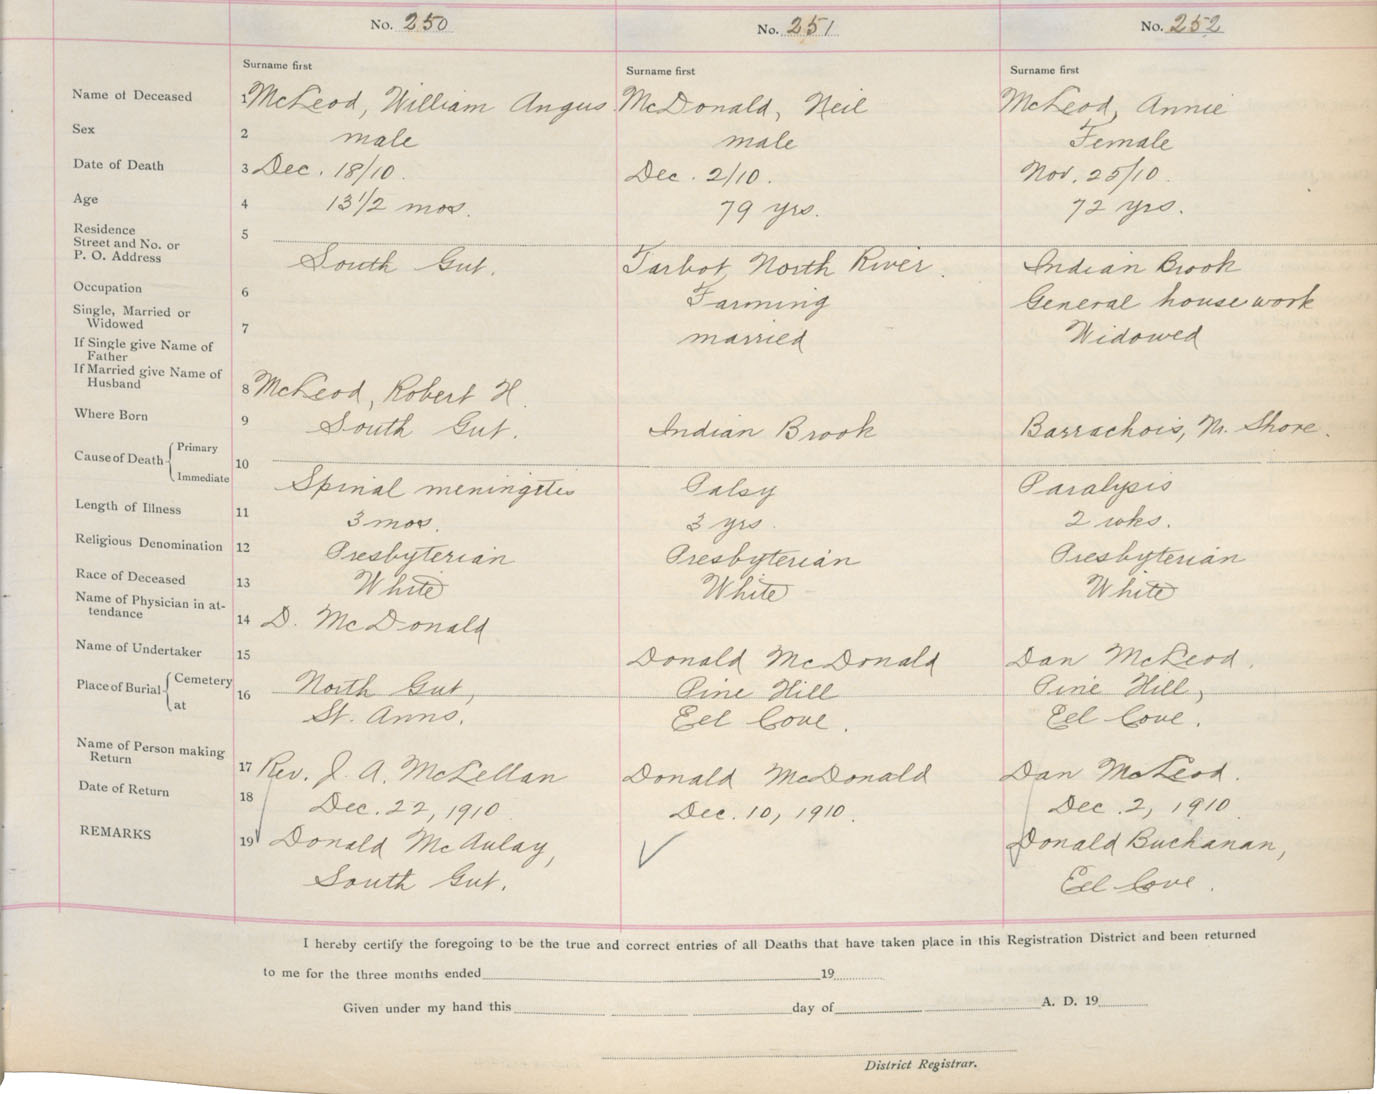 No. 250 No. 251 No. 252
Surname first Surname first Surname first
Name of Deceased 1 McLeod, William Angus McDonald, Neil McLeod, Annie
Sex 2 male male Female
Date of Death 3 Dec. 18/10. Dec. 2/10. Nov. 25/10
Age 4 13 1/2 mos. 79 yrs. 72 yrs.
Residence
Street and No. or 5
P. O. Address South Gut. Tarbot, North River. Indian Brook
Occupation 6 Farming General housework
Single, Married or
Widowed 7 married Widowed
If Single give Name of
Father
If Married give Name of
Husband 8 McLeod, Robert H.
Where Born 9 South Gut. Indian Brook Barrachois, Nr. Shore.
Cause of Death Primary
10
Immediate Spinal meningitis Palsy Paralysis
Length of Illness 11 3 mos. 3 yrs. 2 wks.
Religious Denomination 12 Presbyterian Presbyterian Presbyterian
Race of Deceased 13 White White White
Name of Physician in at-
tendance 14 D. McDonald
Name of Undertaker 15 Donald McDonald Dan McLeod.
Place of Burial Cemetery 16 North Gut, Pine Hill Pine Hill,
at St. Anns. Eel Cove. Eel Cove.
Name of Person making
Return 17 Rev. J. A. McLellan Donald McDonald Dan McLeod.
Date of Return 18 Dec. 22, 1910 Dec. 10, 1910. Dec. 2, 1910
REMARKS 19 Donald McAulay, Donald Buchanan,
South Gut. Eel Cove.
I hereby certify the foregoing to be the true and correct entries of all Deaths that have taken place in this Registration District and been returned
to me for the three months ended 19
Given under my hand this day of A. D. 19
District Registrar.